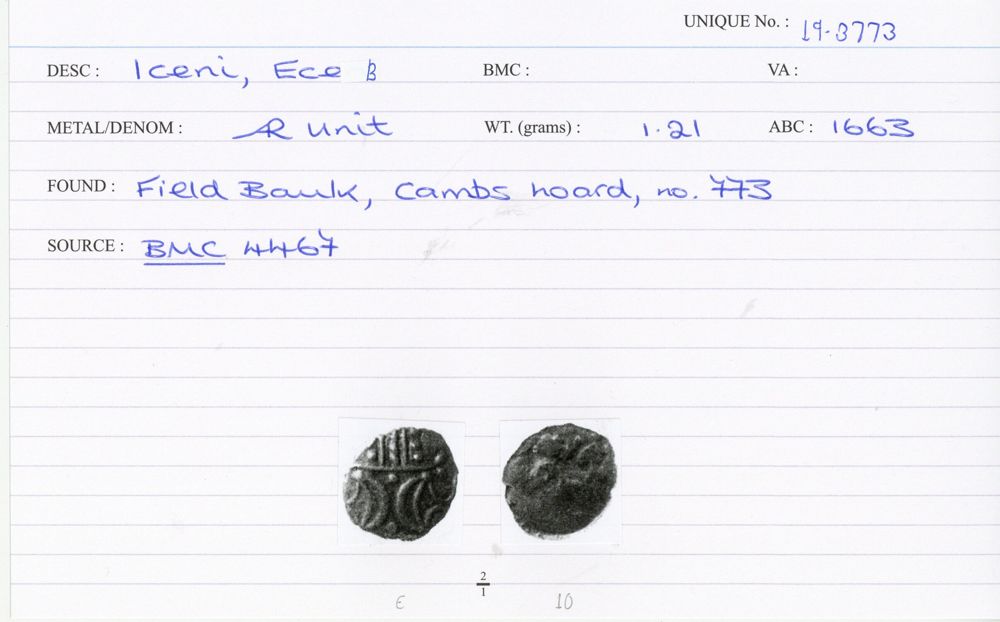 UNIQUE No. : 19-3773
DESC : Iceni, Ece B BMC : VA :
METAL/DENOM : AR unit WT. (grams) : 1.21 ABC : 1663
FOUND : Field Baulk, Cambs hoard, no. 773
SOURCE : BMC 4467
2
1
E 10